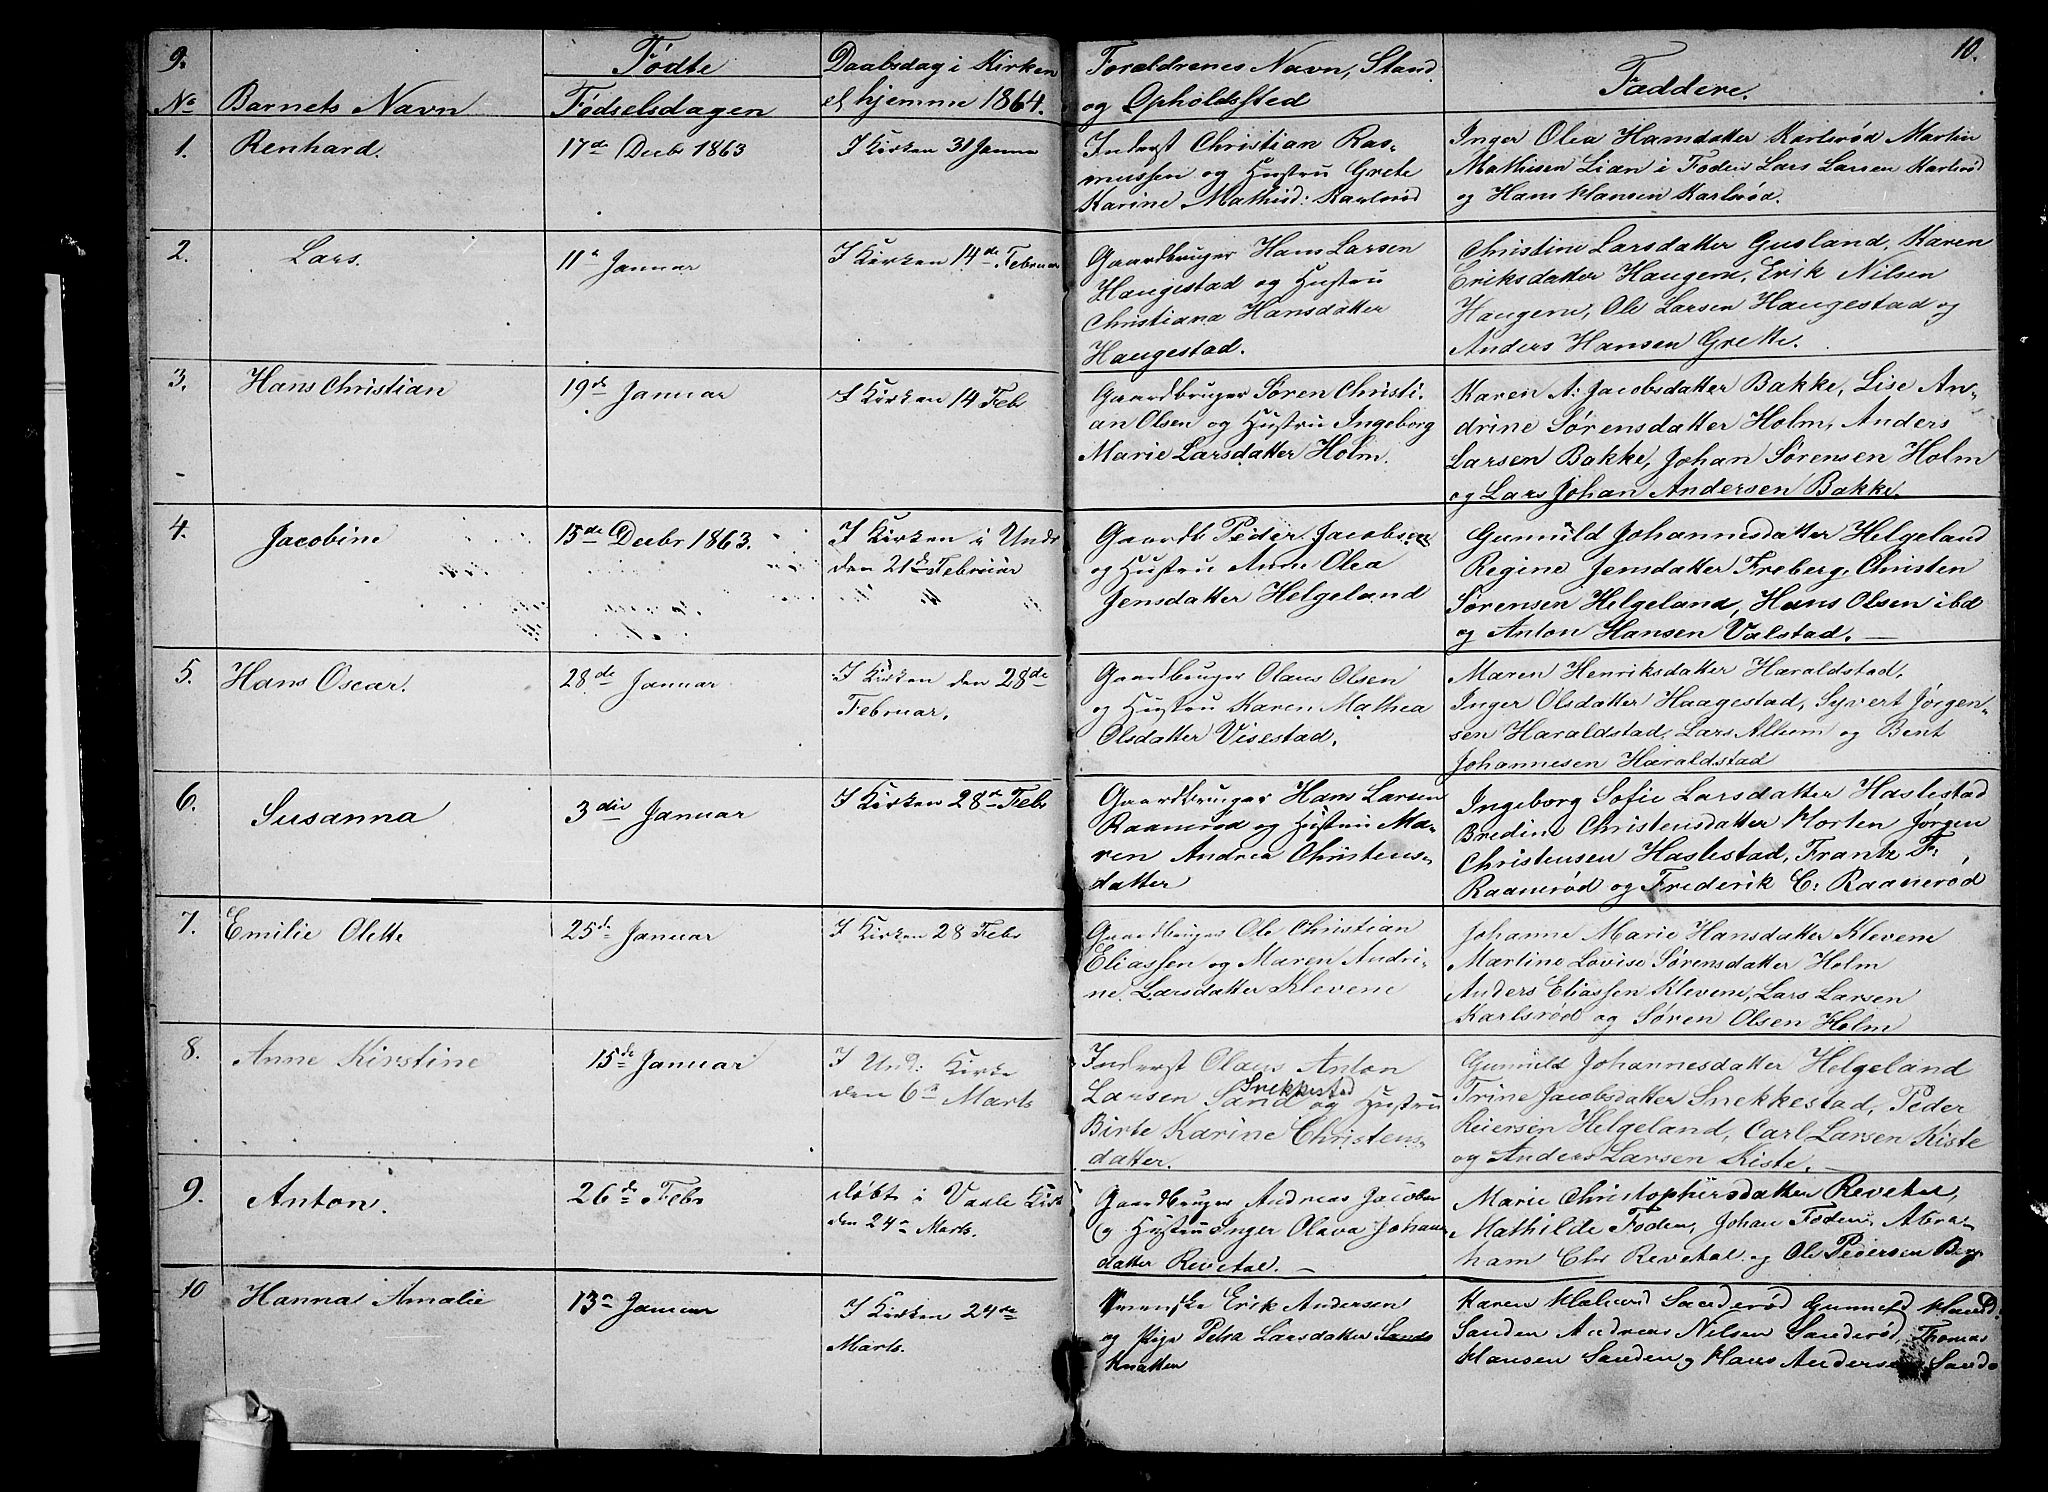 9.
Fødte
Daabsdag i Kirken
Forældrenes Navn, Stand
10.
No Barnets Navn
Fødselsdagen
el hjemme 1864.
og Opholdssted
Faddere.
1. Renhard.
17de Decbr 1863
I Kirken 31 Janua
Inderst Christian Ras-
mussen og Hustru Grete
Karine Mathisd: Karlsrød
Inger Olea Hansdatter Karlsrød Martin
Mathisen Lian i Foden Lars Larsen Karlsrød
og Hans Hansen Karlsrød.
2. Lars.
11te Januar
I Kirken 14de Februar
Gaardbruger Hans Larsen
Haugestad og Hustru
Christiana Hansdatter
Haugestad.
Christine Larsdatter Gusland, Karen
Eriksdatter Haugene, Erik Nilsen
Haugene, Ole Larsen Haugestad og
Anders Hansen Grette.
3. Hans Christian
19de Januar
I Kirken 14 Feb
Gaardbruger Søren Christi-
an Olsen og Hustru Ingeborg
Marie Larsdatter Holm.
Karen A: Jacobsdatter Bakke, Lise An-
drine Sørensdatter Holm, Anders
Larsen Bakke, Johan Sørensen Holm
og Lars Johan Andersen Bakke.
4. Jacobine
15de Decbr 1863.
I Kirken i Undr
den 21de Februar
Gaardb Peder Jacobsen
og Hustru Anne Olea
Jensdatter Helgeland
Gunnild Johannesdatter Helgeland
Regine Jensdatter Freberg, Christen
Sørensen Helgeland, Hans Olsen ibd
og Anton Hansen Valstad.
5. Hans Oscar.
28de Januar
I Kirken den 28de
Februar.
Gaardbruger Olaus Olsen
og Hustru Karen Mathea
Olsdatter Visestad.
Maren Henriksdatter Haraldstad,
Inger Olsdatter Haagestad, Syvert Jørgen-
sen Haraldstad, Lars Alhem og Bent
Johannesen Haraldstad
6. Susanna
3die Januar
I Kirken 28de Febr
Gaardbruger Hans Larsen
Raanerød og Hustru Ma-
ren Andrea Christens-
datter
Ingeborg Sofie Larsdatter Haslestad
Bredine Christensdatter Horten Jørgen
Christensen Haslestad, Frantz F:
Raanerød og Frederik C: Raanerød
7. Emilie Olette
25de Januar
I Kirken 28 Febr
Gaardbruger Ole Christian
Eliassen og Maren Andri-
ne Larsdatter Klevene
Johanne Marie Hansdatter Klevene
Martine Lovise Sørensdatter Holm
Anders Eliassen Klevene, Lars Larsen
Karlsrød og Søren Olsen Holm
8. Anne Kirstine
15de Januar
I Und: Kirke
den 6te Marts
Inderst Olaus Anton
Snekkestad
Larsen Sand og Hustru
Birte Karine Christens-
datter.
Gunnild Johannesdatter Helgeland
Trine Jacobsdatter Snekkestad, Peder
Reiersen Helgeland, Carl Larsen Kiste
og Anders Larsen Kiste.
9. Anton.
26de Febr
døbt i Vasle Kirk
den 24de Marts.
Gaardbruger Andreas Jacobsen
og Hustru Inger Olava Johan
datter Revetal.
Marie Christophersdatter Revetal,
Mathilde Foden, Johan Foden, Abra-
ham Chr Revetal og Ole Pedersen Berg
10 Hanna Amalie
13de Januar
I Kirken 24de
Marts.
Erik Andersen
og Pige Petra Larsdatter Sando
Knatten
Karen Sanderød Gunnild
Sanden Andreas Nilsen Sanderød, Thomas
Hansen Sanden og Hans Andersen Sando